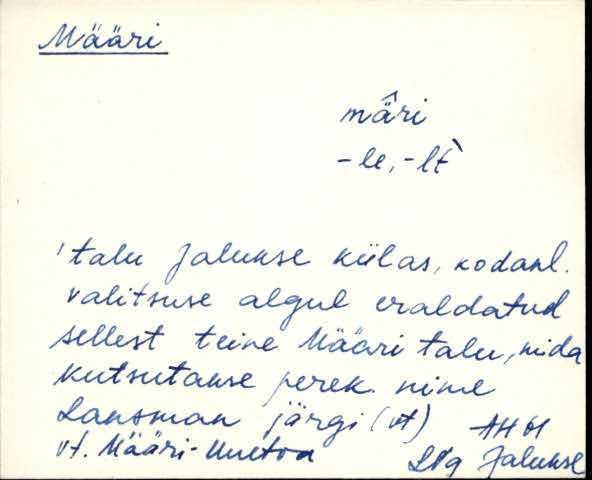 Määri
mâri
-le, -lt
'talu Jalukse külas, kodanl.
valitsuse algul eraldatud
sellest teine Määri talu, mida
kutsutakse perek. nime
Lansman järgi (vt)
vt. Määri-Uuetoa
AH 61
Lüg Jalukse